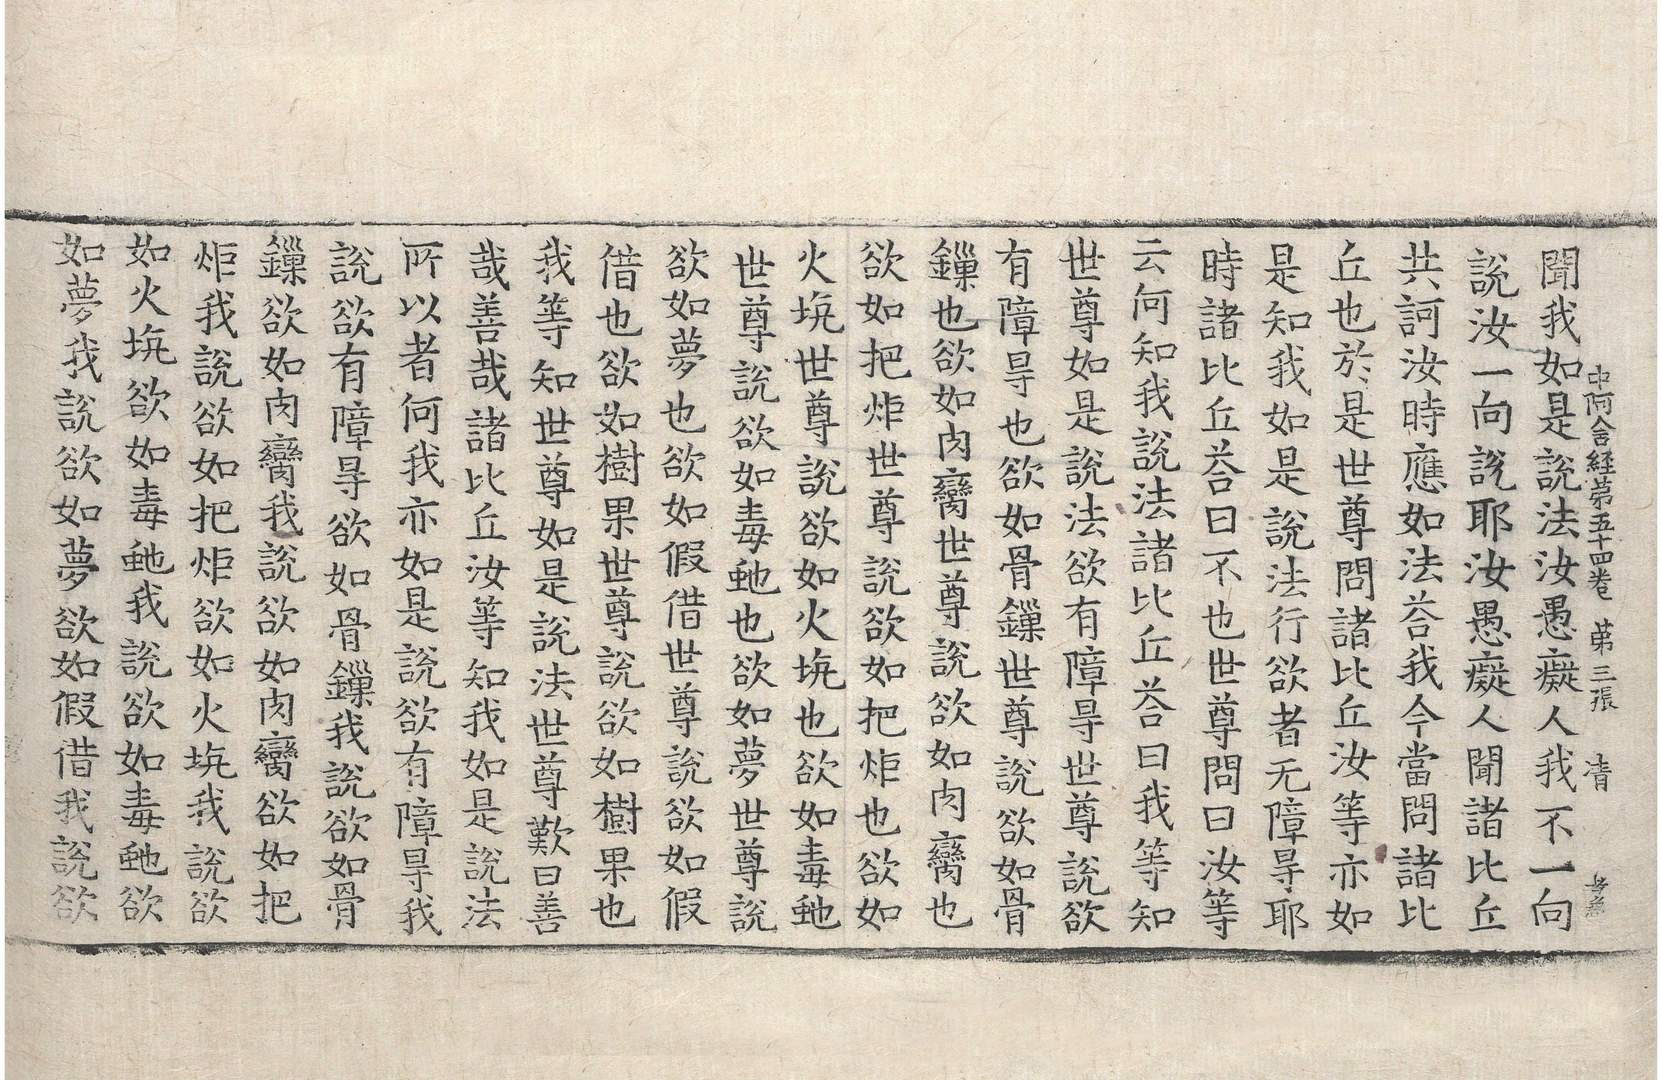 中阿含経苐五十四巻 苐三張 清
聞我如是說法汝愚癡人我不一向
說汝一向說耶汝愚癡人聞諸比丘
共訶汝時應如法荅我今當問諸比
丘也於是世尊問諸比丘汝等亦如
是知我如是說法行欲者无障㝵耶
時諸比丘荅曰不也世尊問曰汝等
云何知我說法諸比丘荅曰我等知
世尊如是說法欲有障㝵世尊說欲
有障㝵也欲如骨鏁世尊說欲如骨
鏁也欲如肉臠世尊說欲如肉臠也
欲如把炬世尊說欲如把炬也欲如
火坑世尊說欲如火坑也欲如毒虵
世尊說欲如毒虵也欲如夢世尊說
欲如夢也欲如假借世尊說欲如假
借也欲如樹果世尊說欲如樹果也
我等知世尊如是說法世尊歎曰善
哉善哉諸比丘汝等知我如是說法
所以者何我亦如是說欲有障㝵我
說欲有障㝵欲如骨鏁我說欲如骨
鏁欲如肉臠我說欲如肉臠欲如把
炬我說欲如把炬欲如火坑我說欲
如火坑欲如毒虵我說欲如毒虵欲
如夢我說欲如夢欲如假借我說欲